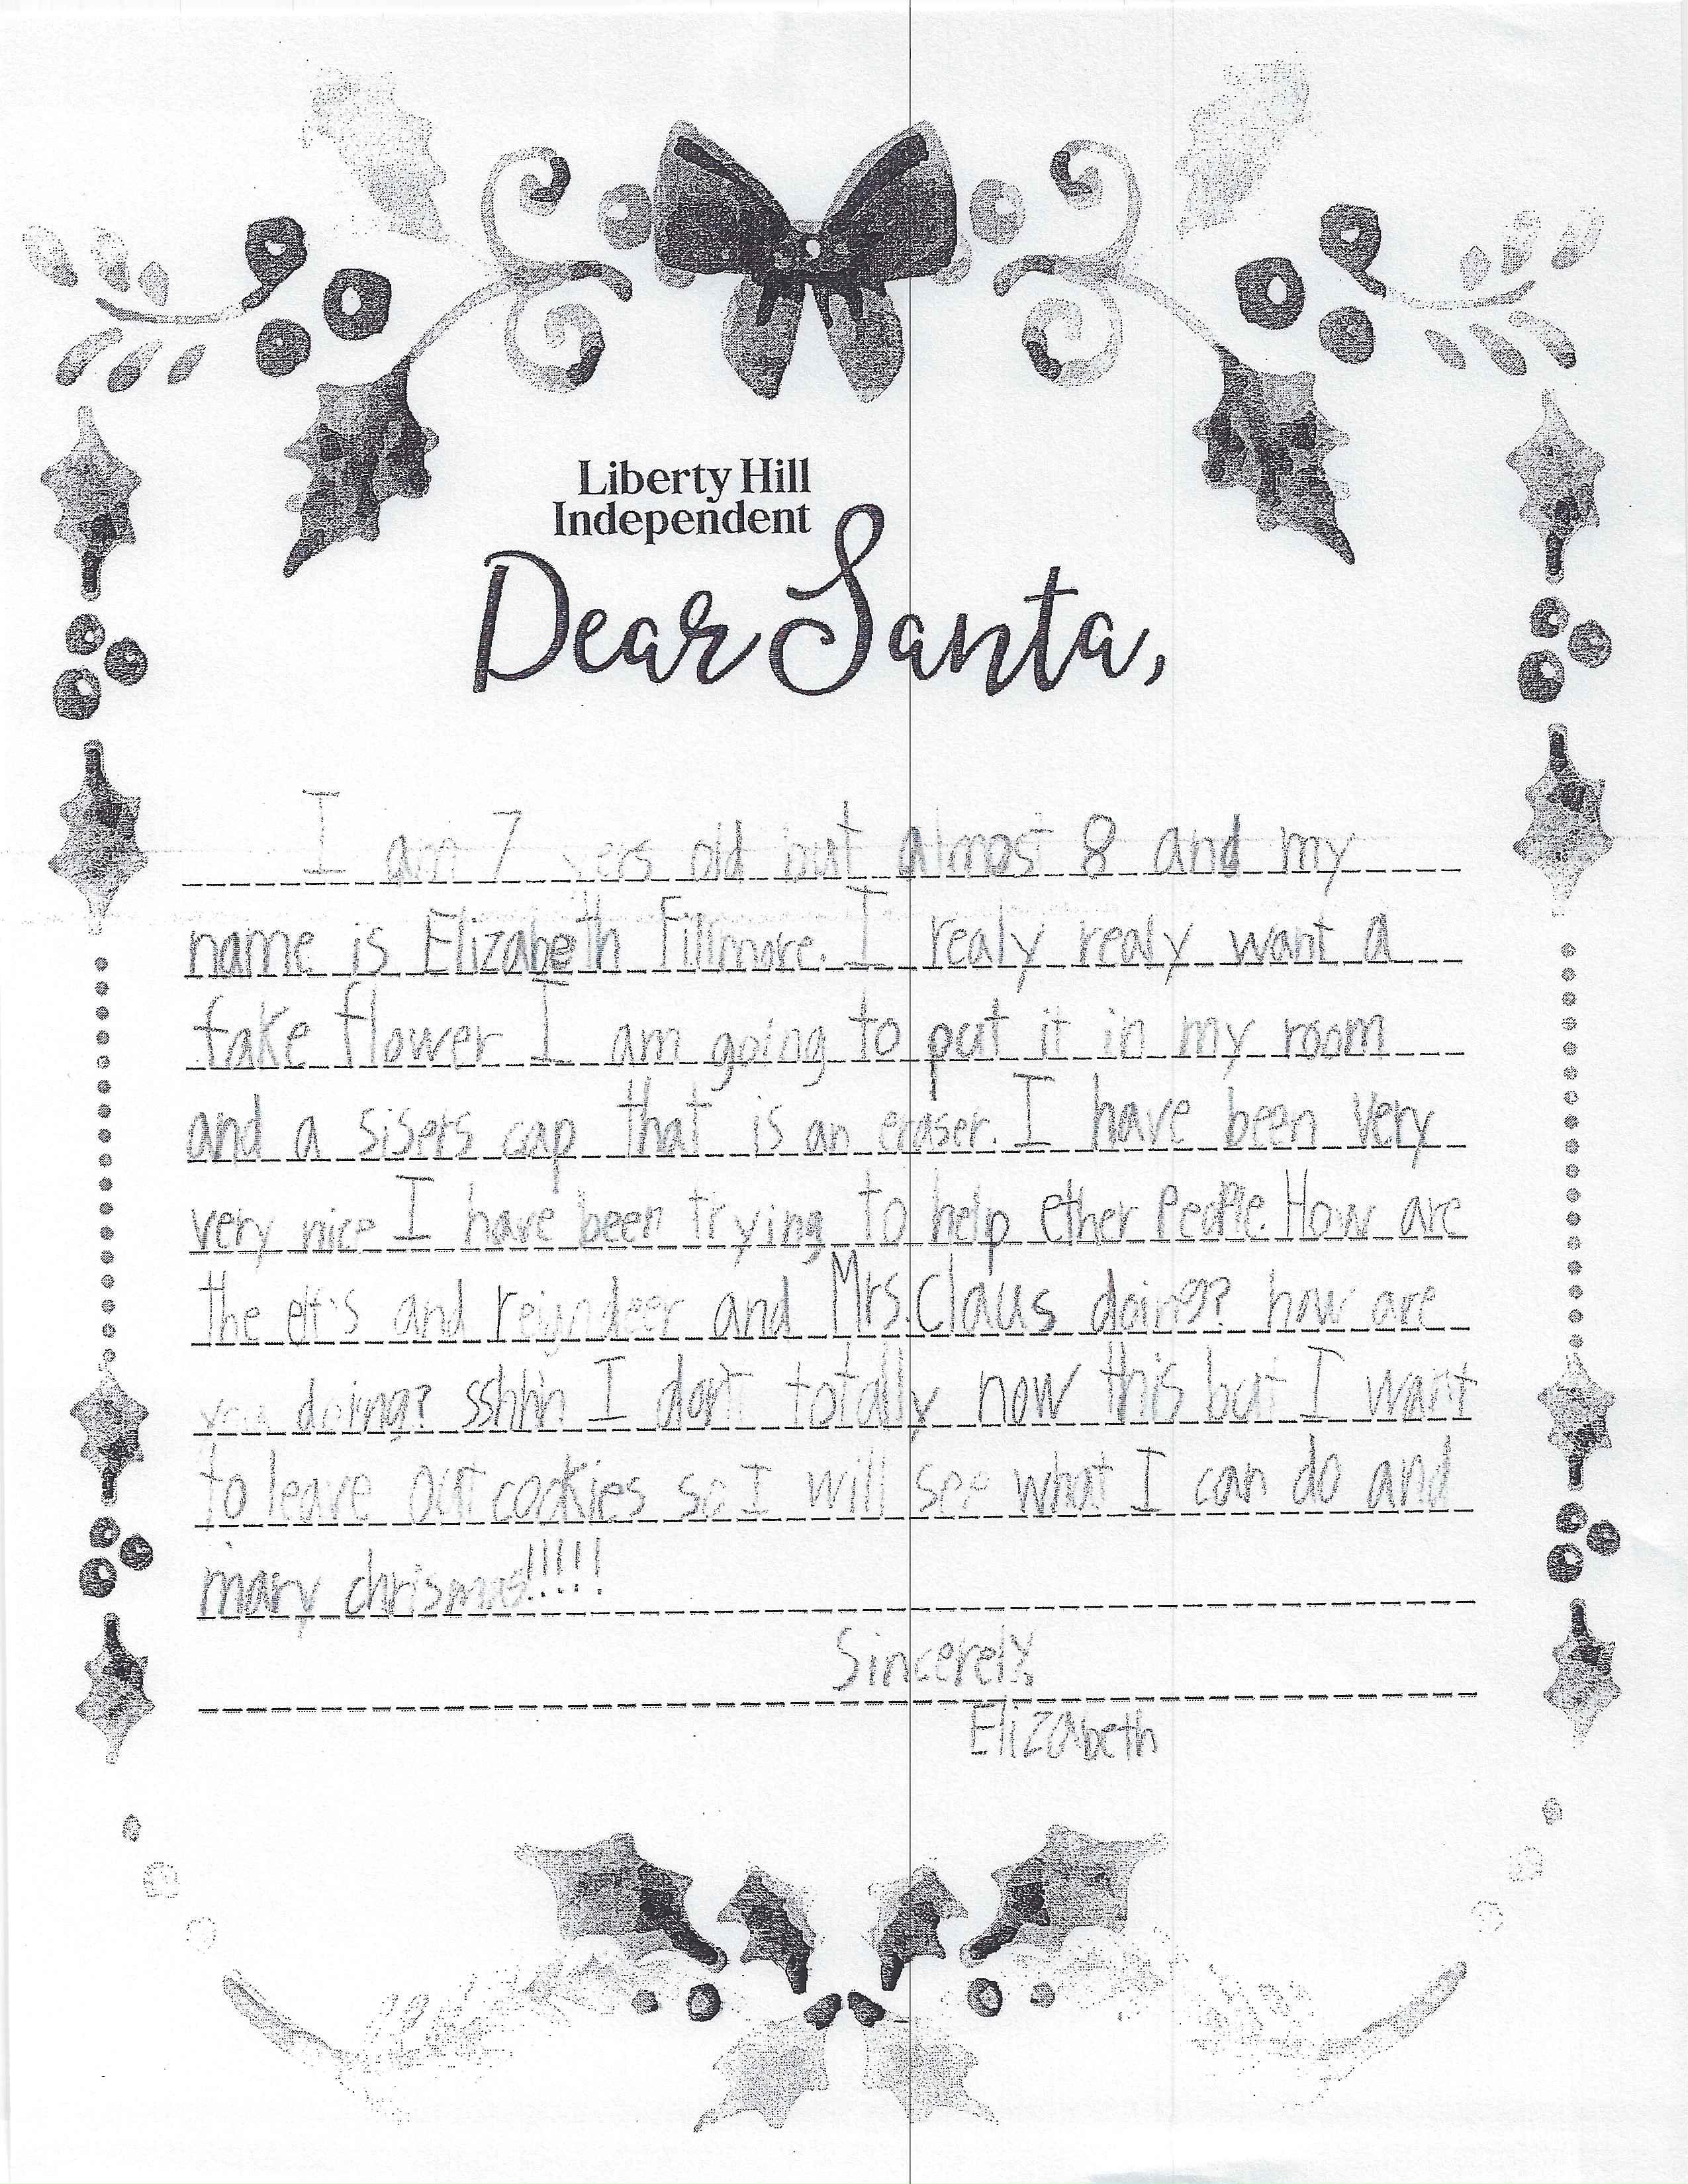 Liberty Hill
Independent
Dear Santa,
I am 7 yers old but almost 8 and my
name is Elizabeth Fillmore. I realy realy want a
fake flower I am going to put it in my room
and a sisers cap that is an eraser. I have been very
very nice I have been trying to help ether People. How are
the elf's and reigndeer and Mrs. Claus doing? how are
you doing? sshhh I don't totally now this but I want
to leave out cookies so I will see what I can do and
mary chrismas!!!!!
Sincerely,
Elizabeth